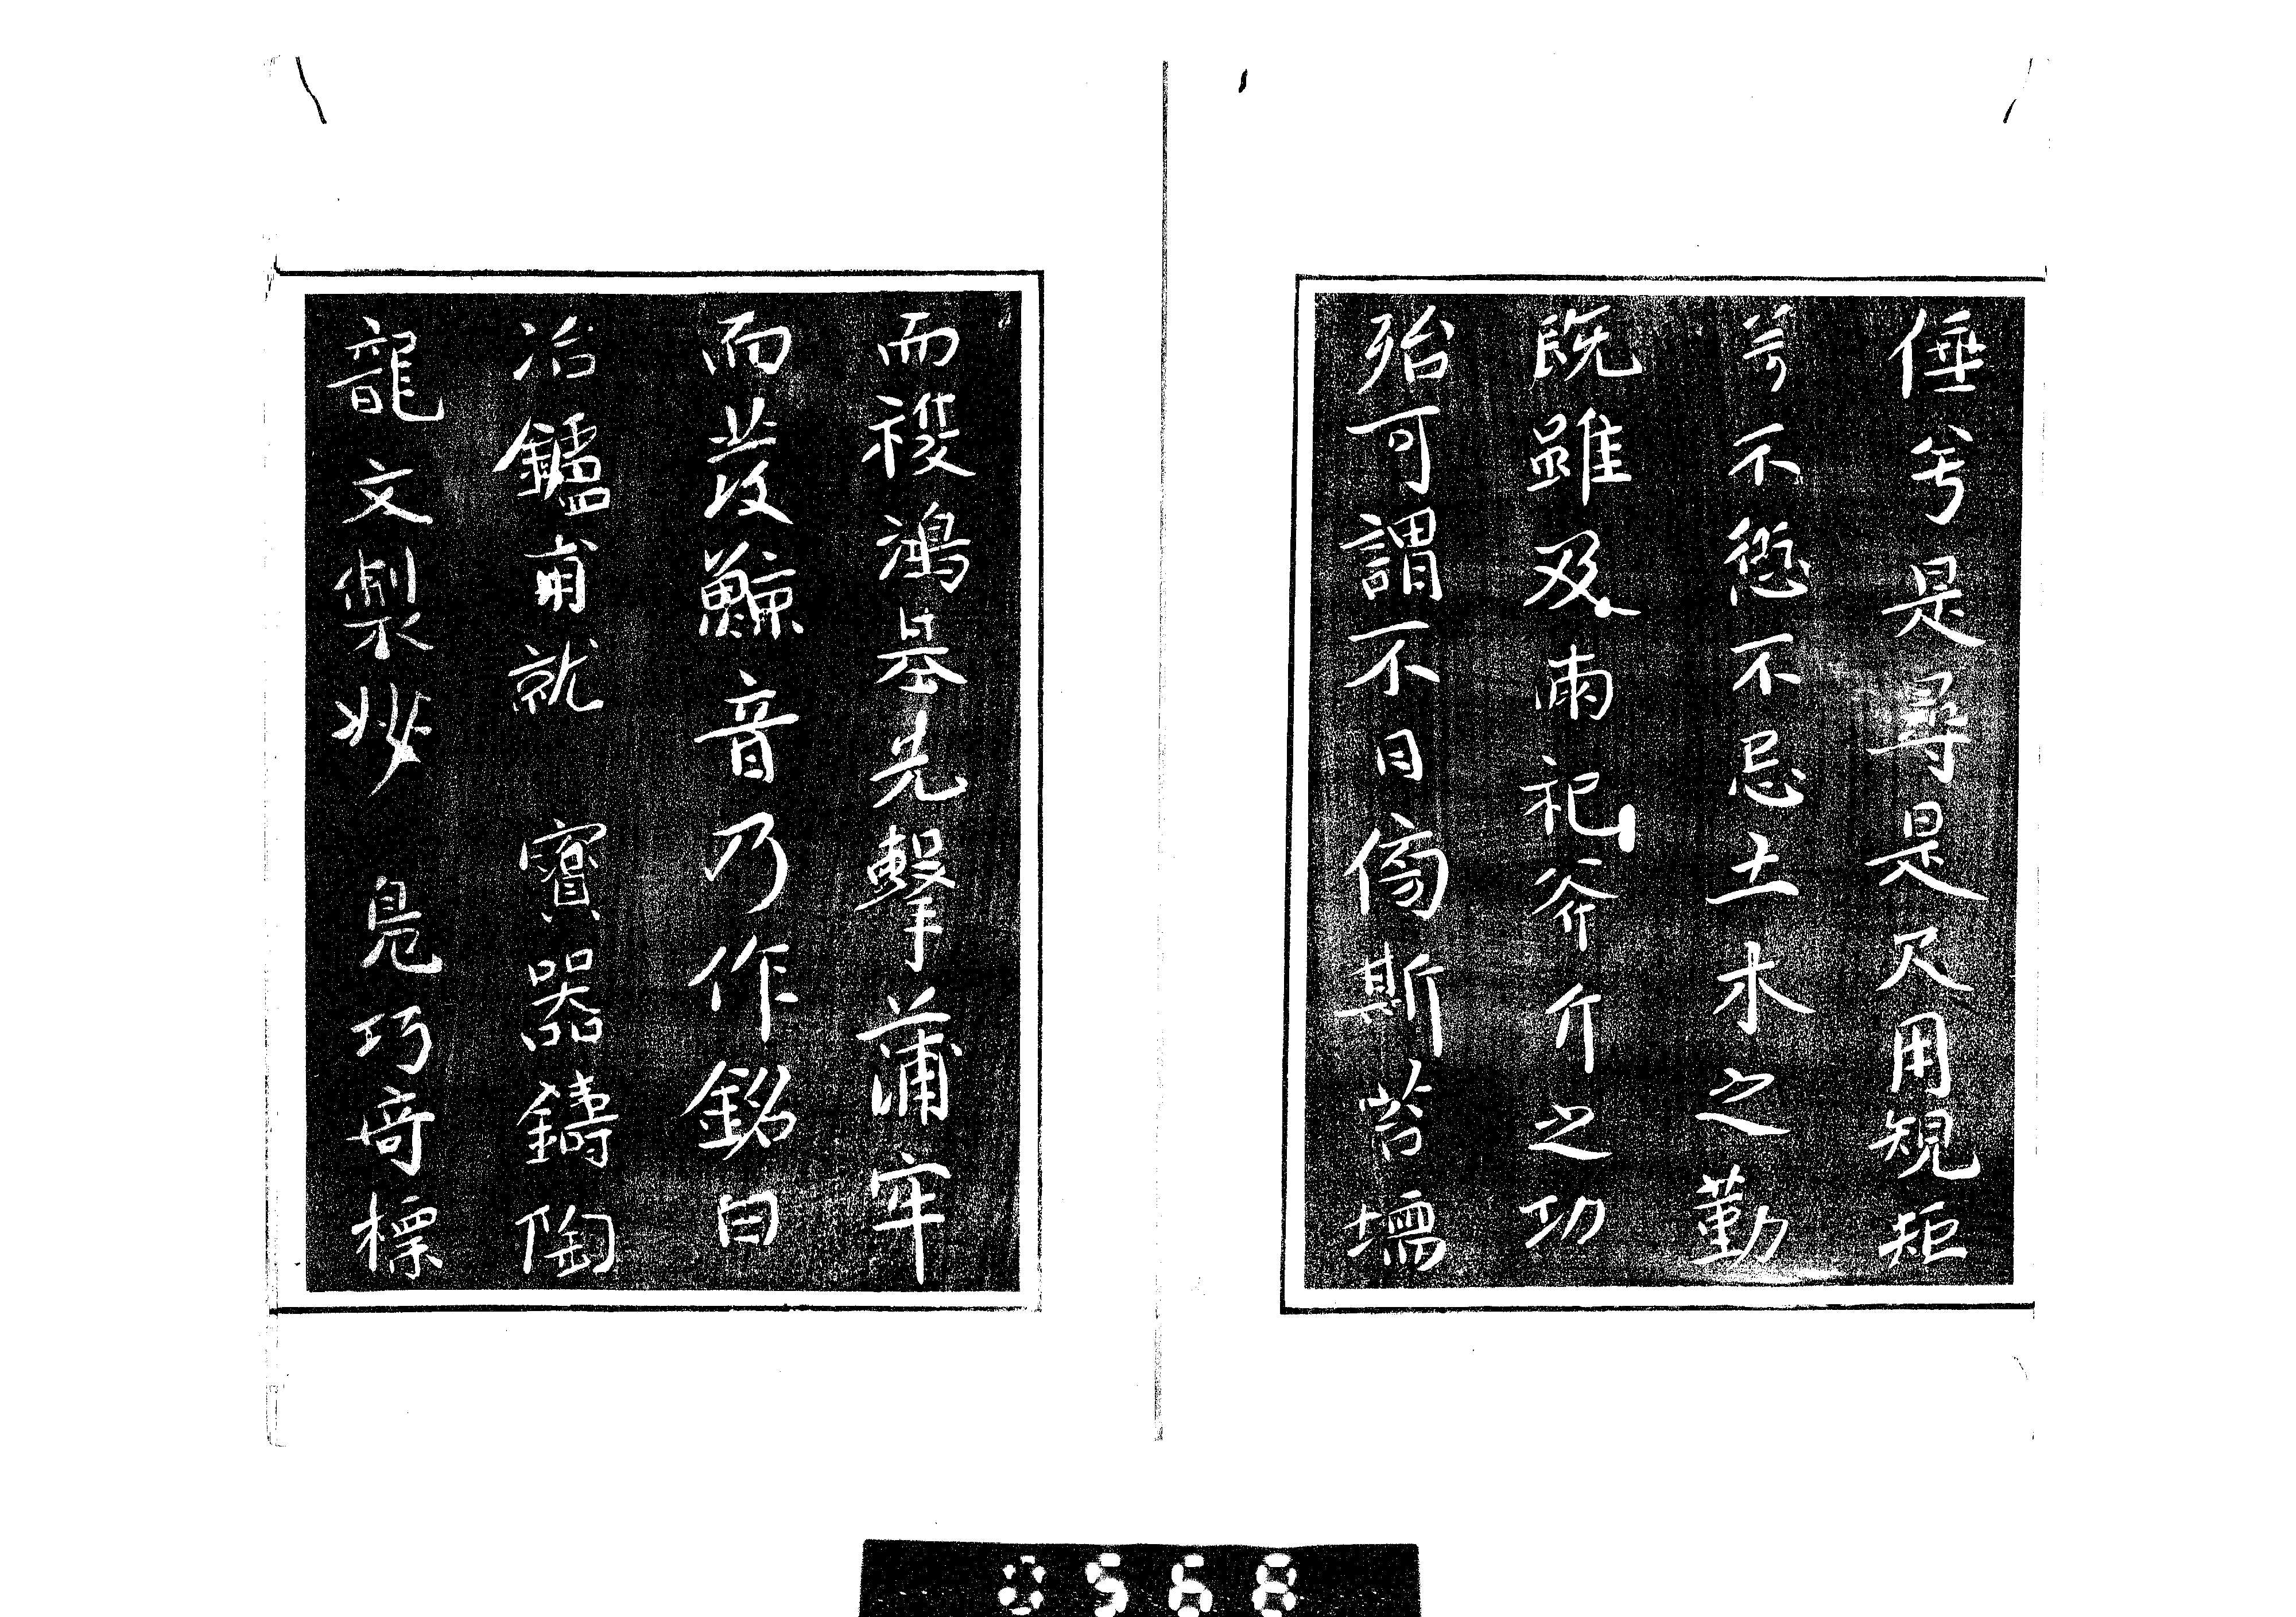 倕兮是尋是尺用規矩
兮不愆不忌土木之勤
既雖及兩祀斧斤之功
殆可謂不日傷斯營壞
而複鴻基先擊蒲牢
而發鯨音乃作銘曰
冶鑪甫就 寶器鑄陶
龍文製妙 鳧巧奇標
0568